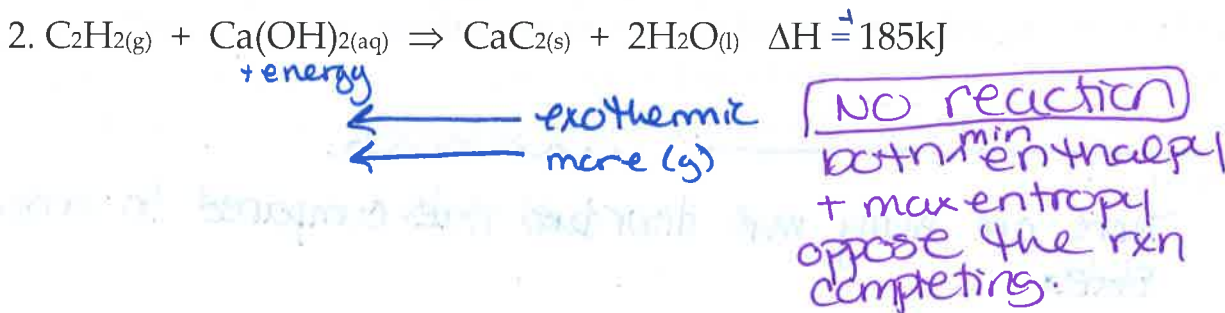 2. C2H2(g) + Ca(OH)2(aq) ⇒ CaC2(s) + 2H2O(l) ΔH = +185kJ
+ energy
← exothermic
← more (g)
NO reaction
both min enthalpy
+ max entropy
oppose the rxn
completing.